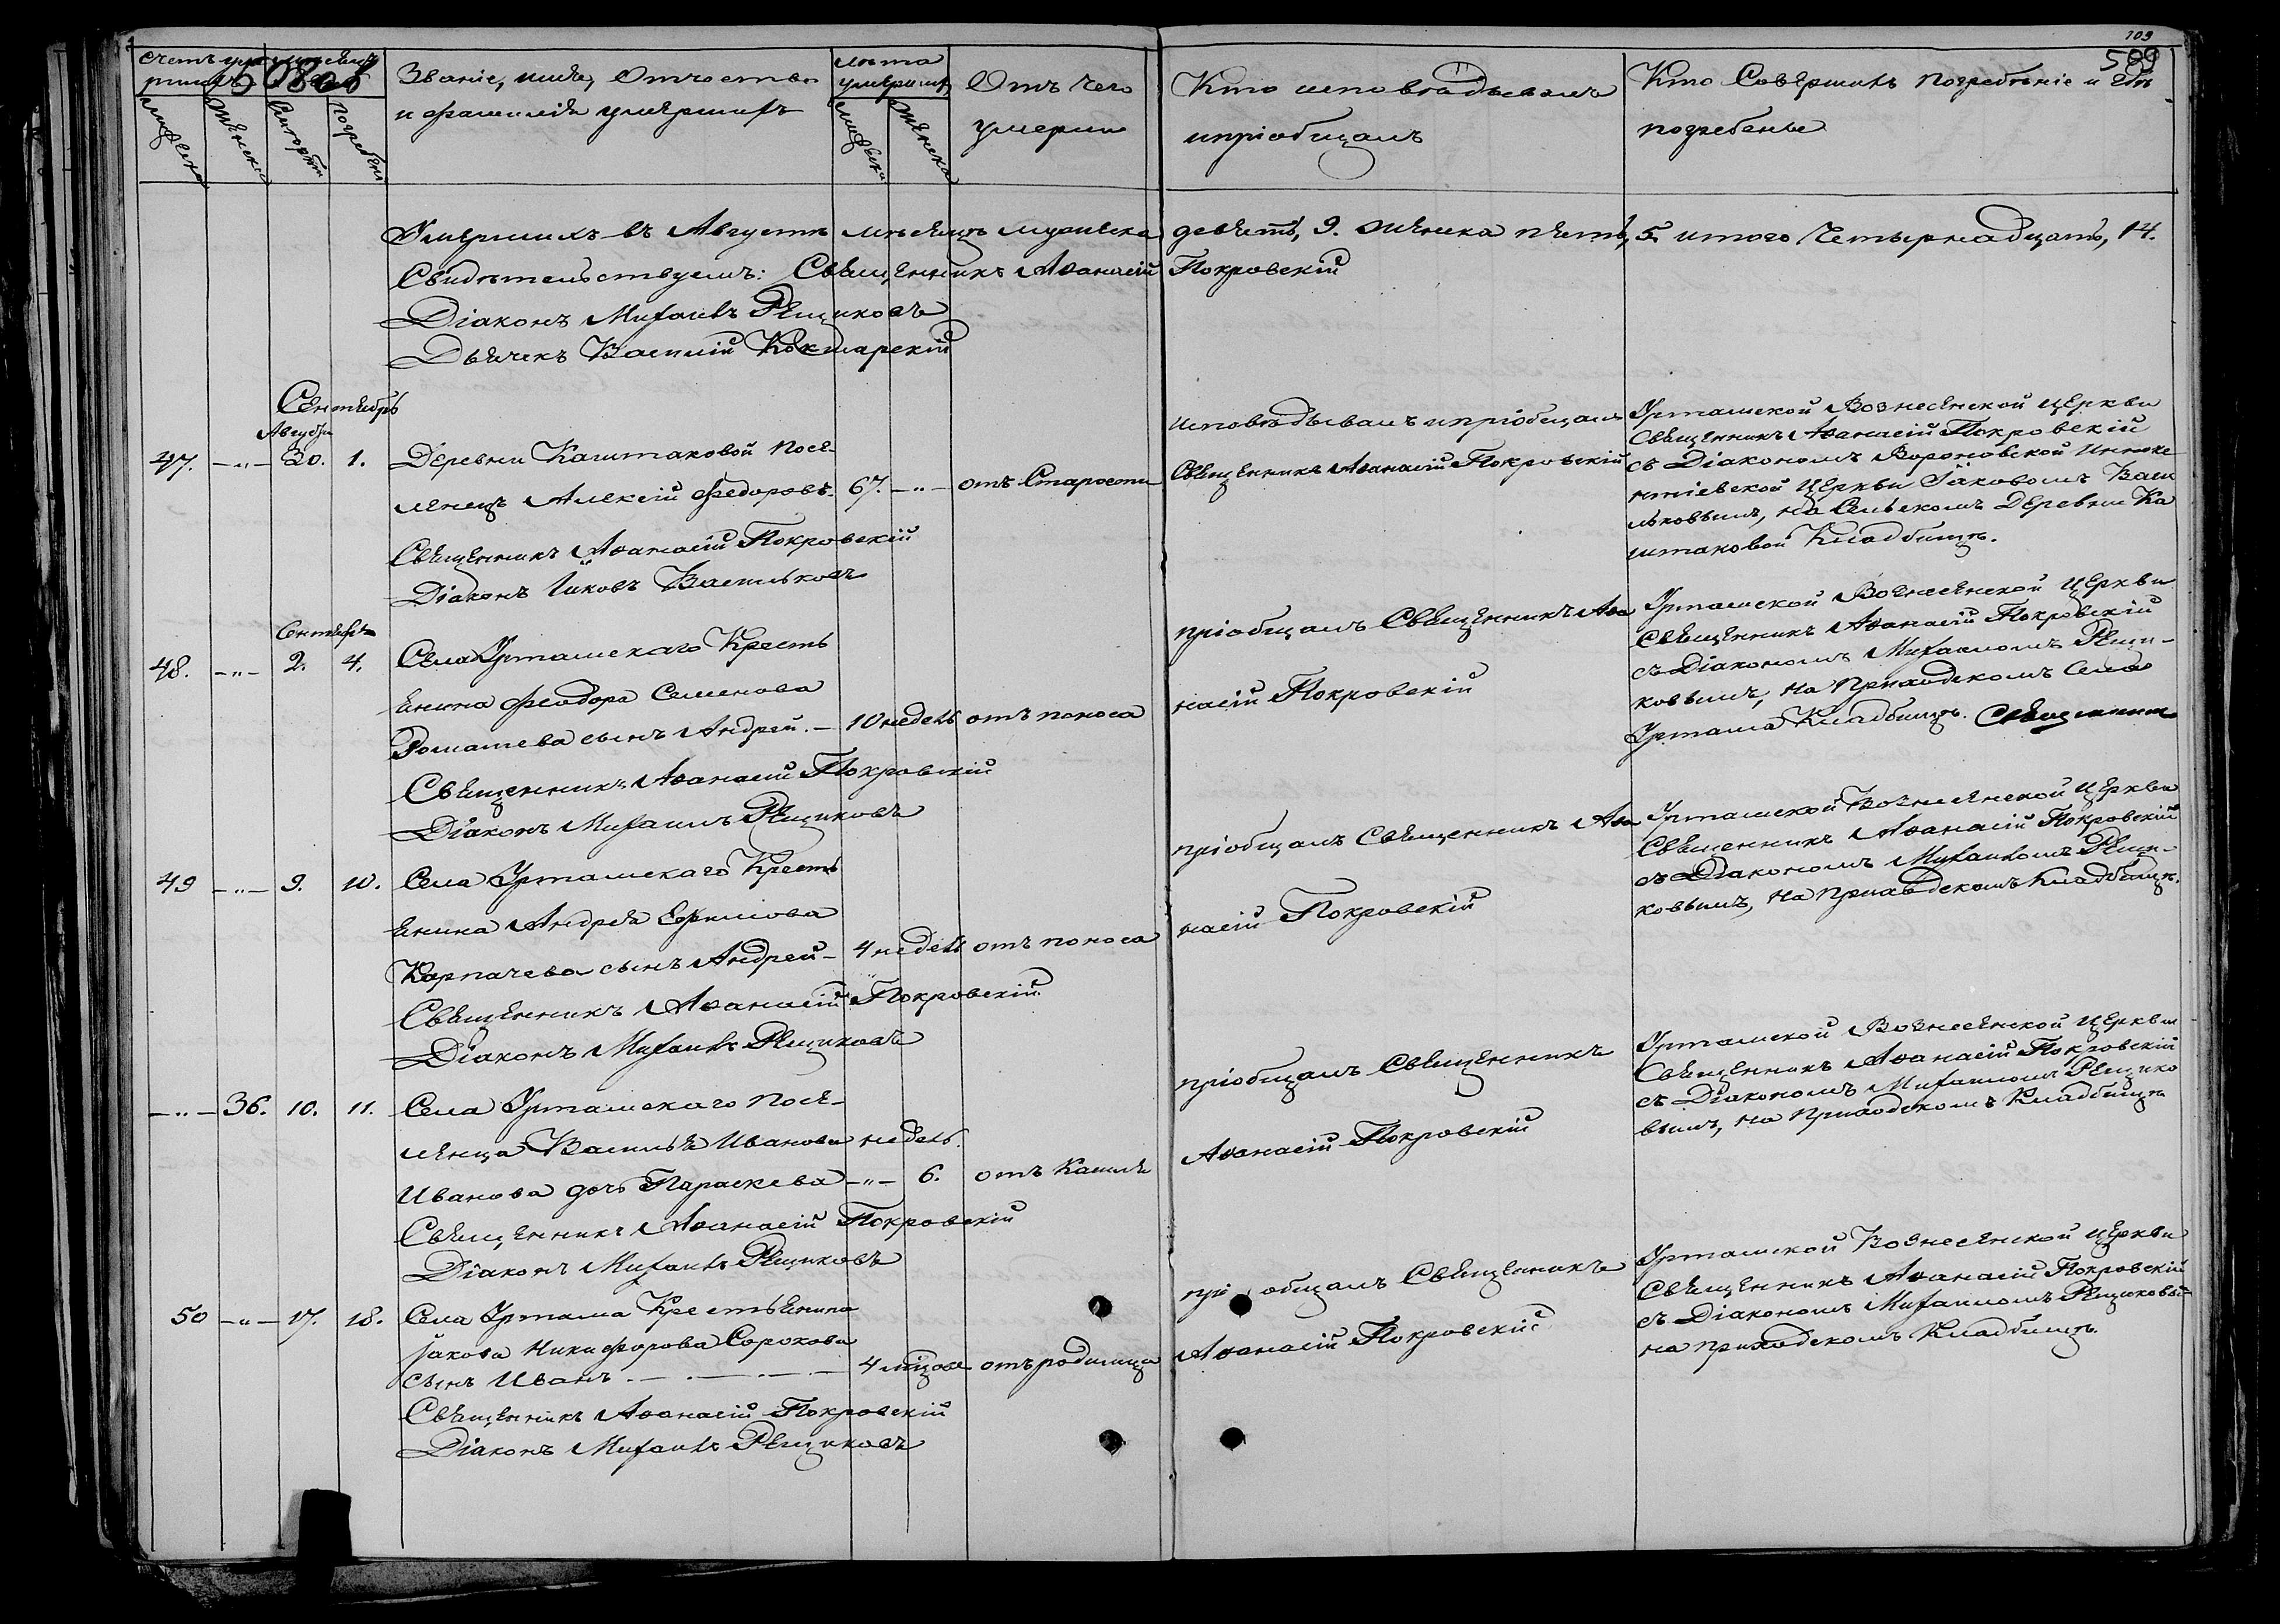 109
509
Счетъ умершихъ
Мѣсяцъ и день
Званіе, имя, Отчество
и фамилія умершихъ
лѣта умершихъ
Отъ чего
умерли
Кто исповѣдывалъ
и пріобщалъ
Кто Совершилъ погребеніе и гдѣ
погребены
мужеска
женска
смерти
погребенія
мужеска
женска
Умершихъ въ Августѣ мѣсяцѣ мужеска девять, 9. женска пять, 5. итого Четырнадцать, 14.
Свидѣтельствуемъ: Священникъ Аѳанасій Покровскій
Діаконъ Михаилъ Рещиковъ
Дьячекъ Василій Кокшарскій
Сентябрь
Августа
47. —"— 30. 1. Деревни Каштаковой посе-
ленецъ Алексій Федоровъ. 67. —"— отъ Старости
Священникъ Аѳанасій Покровскій
Діаконъ Іаковъ Васильковъ
исповѣдывалъ и пріобщалъ
Священникъ Аѳанасій Покровскій
Урташской Вознесенской церкви
Священникъ Аѳанасій Покровскій
съ Діакономъ Вороновской Иннокe
нтіевской церкви Іаковомъ Васи
льковымъ, на Сельскомъ Деревни Ка
штаковой Кладбищѣ.
Сентября
48. —"— 2. 4. Села Уртамскаго Кресть
янина Феодора Семенова
Ромашева сынъ Андрей. — 10 недель отъ поноса
Священникъ Аѳанасій Покровскій
Діаконъ Михаилъ Рещиковъ
пріобщалъ Священникъ Аѳа
насій Покровскій
Уртамской Вознесенской церкви
Священникъ Аѳанасій Покровскій
съ Діакономъ Михаиломъ Рещи-
ковымъ, на Приходскомъ Села
Уртама Кладбищѣ. Священник
49 —"— 9. 10. Села Уртамскаго Кресть
янина Андрея Ефимова
Карпачева сынъ Андрей — 4 недель отъ поноса
Священникъ Аѳанасій Покровскій
Діаконъ Михаилъ Рещиковъ
пріобщалъ Священникъ Аѳа
насій Покровскій
Уртамской Вознесенской церкви
Священникъ Аѳанасій Покровскій
съ Діакономъ Михаиломъ Рещи-
ковымъ, на Приходскомъ Кладбищѣ.
—"— 36. 10. 11. Села Уртамскаго посе-
ленца Василья Иванова недель.
Иванова дочь Параскева —"— 6. отъ Кашля
Священникъ Аѳанасій Покровскій
Діаконъ Михаилъ Рещиковъ
пріобщалъ Священникъ
Аѳанасій Покровскій
Уртамской Вознесенской церкви
Священникъ Аѳанасій Покровскій
съ Діакономъ Михаиломъ Рещико
вымъ, на Приходскомъ Кладбищѣ
50 —"— 17. 18. Села Уртама Крестьянина
Іакова Никифорова Сорокова
сынъ Иванъ. — . — . — . — 4 мѣсяцовъ отъ родимца
Священникъ Аѳанасій Покровскій
Діаконъ Михаилъ Рещиковъ
пріобщалъ Священникъ
Аѳанасій Покровскій
Уртамской Вознесенской церкви
Священникъ Аѳанасій Покровскій
съ Діакономъ Михаиломъ Рещиковы
на приходскомъ Кладбищѣ.